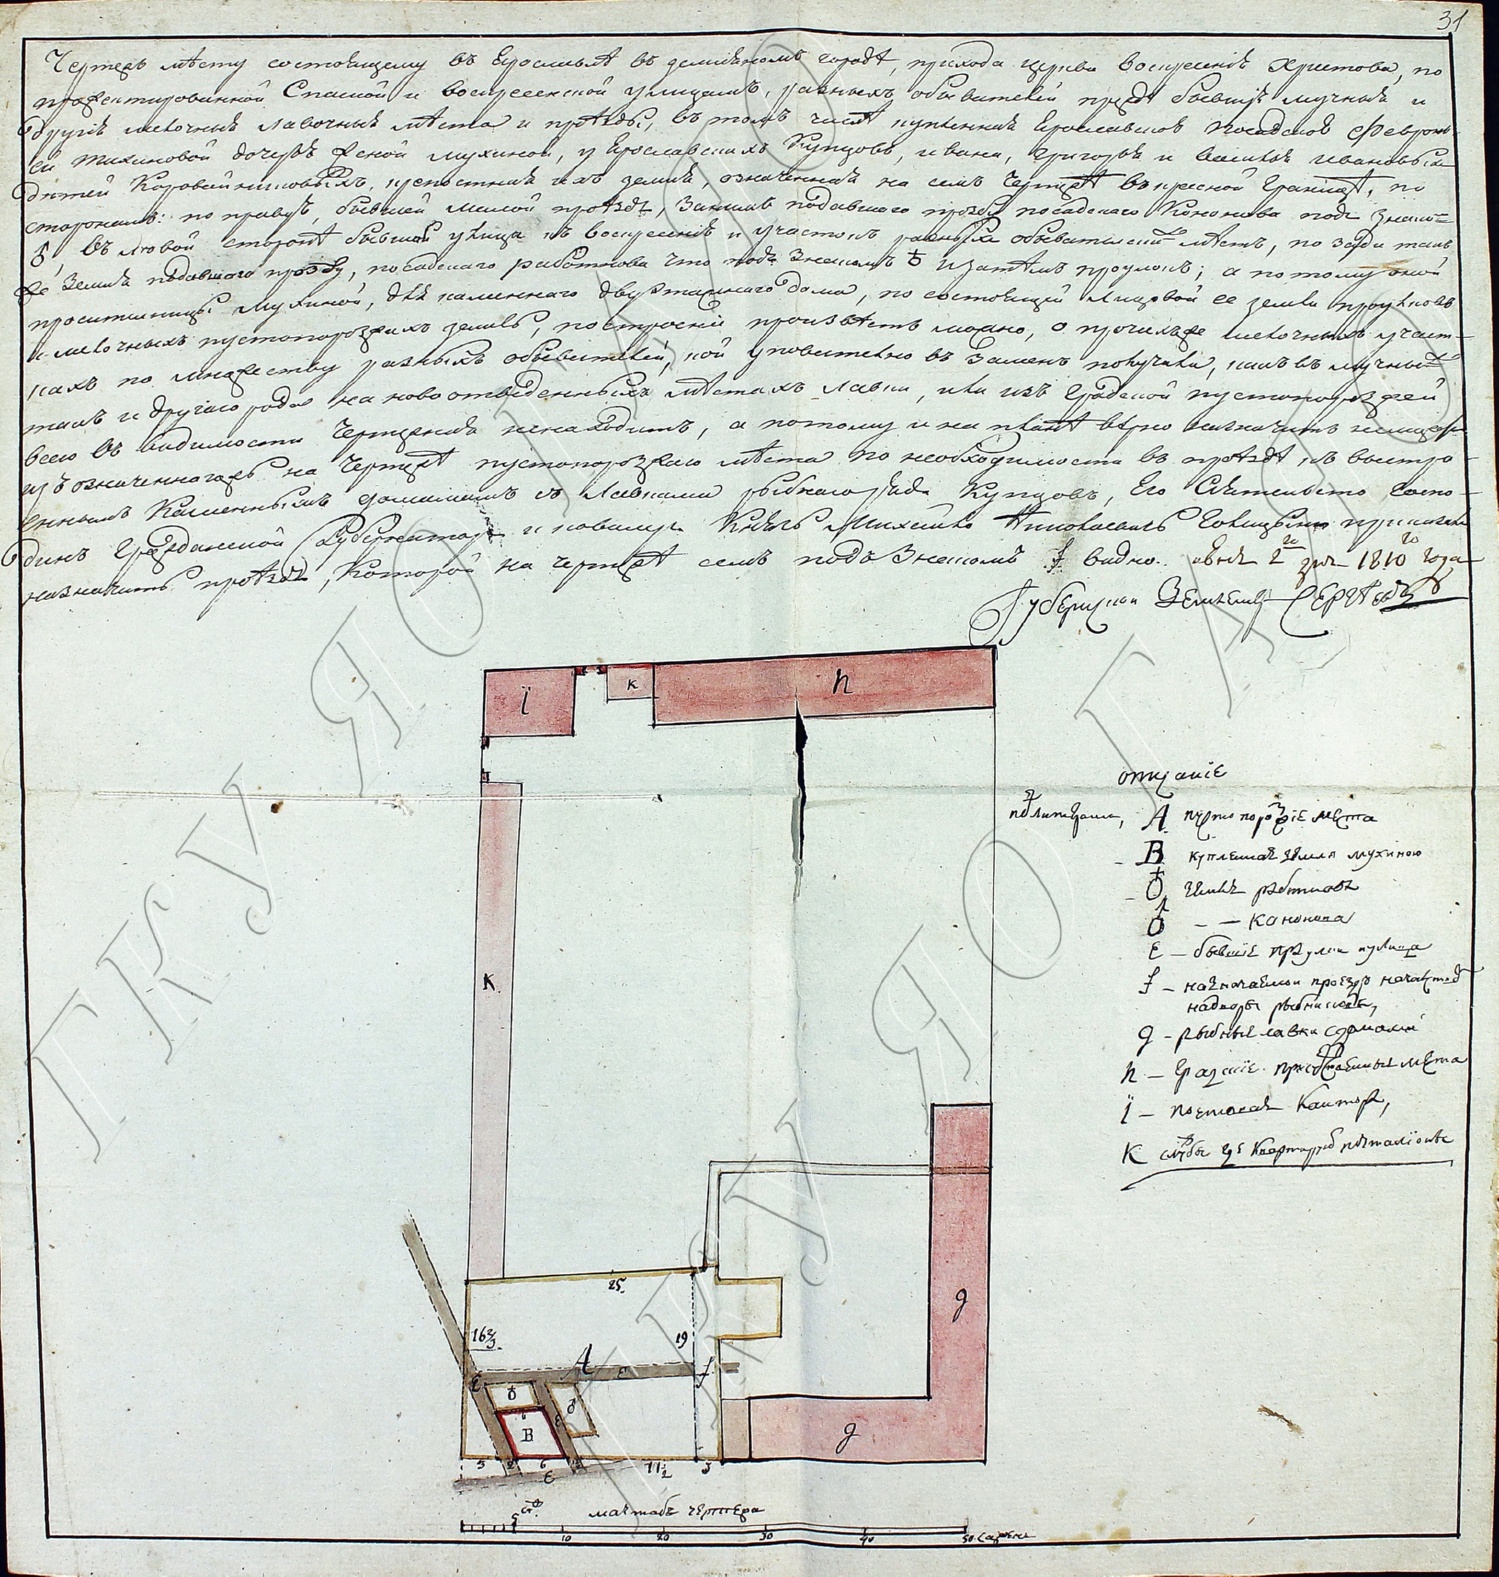 31
Чертежъ мѣсту состоящему въ Ерославлѣ въ земляномъ городѣ, прихода церкви Воскресенія Христова, по
прожектированной Спаской и воскресенской улицамъ, разныхъ обывателей предь бывшія мучныя и
другія мелочныя лавочныя мѣста и проѣзды, въ томъ числѣ купленная Ерославской Посадской Февронь-
ей Тихиновой дочерь женой мухиной, у Ерославскихъ Купцовъ, ивана, григорья и василья ивановыхъ
дѣтей Коровайниковыхъ, крепостная ихъ земля, означенная на семъ Чертежѣ въ красной границѣ, по
сторонамъ: по правую, бывшей малой проѣздъ, занимъ подавшаго прозбу посадскаго Кононова подъ знаком
въ лювой сторонѣ бывшая улица къ воскресенію и участокъ разныхъ обывательскихъ мѣстъ, по зади такъ
же земля подавшаго прозбу, посадскаго работнова что подъ знакомъ и затѣмъ проулокъ; а потому оной
просительницы Мухиной, для каменнаго двуэтажнаго дома, по состоящей лицовой ее земли проулковъ
и мелочныхъ пустопорозжихъ земель, построеніи произвѣсть можно, о прочихъ же мелочныхъ участ-
кахъ по множеству разныхъ обывателей, кой уповательно въ замѣнъ получили, какъ въ мучныхъ
такъ и другаго рода на ново отведенныхъ мѣстахъ лавки, или изъ градской пустопорозжей
всего въ видимости Чертежной ненаходитъ, а потому и на планѣ вѣрно назначить
изъ означеннагожъ на чертежѣ пустопорозжаго мѣста по необходимости въ проѣздѣ, къ выстро-
енныхъ Каменнымъ домамъ съ лавками рыбнаго ряда купцовъ, Его Сіятельство Госпо-
динъ Гражданской Губернаторъ и кавалеръ Князь Михайло Николаевичь Голицынъ приказалъ
назначить проѣздъ, которой на чертежѣ семъ подъ знакомъ f видно. июня 2го дня 1810го года
Губернской Землемѣръ Сергѣевъ
i
к
h
описаніе
по литерами, А пусто порозжіе мѣста
В купленная земля мухиною
земля работнова
— — Канонова
Е — бывшіе проулки и улица
f — назначаемой проездъ
g — рыбныя лавки с домами
h — градскіе мѣста
i — почтовая Кантора,
К службы где квартируютъ почталіоны
К
25
16⅔
19
А
Е
Е
f
Е
В
g
g
5
2
6
11½
3
Е
маштабъ чертежа
5
10
20
30
40
50 Сажень
ГКУ ЯО ГАЯО
ГКУ ЯО ГАЯО